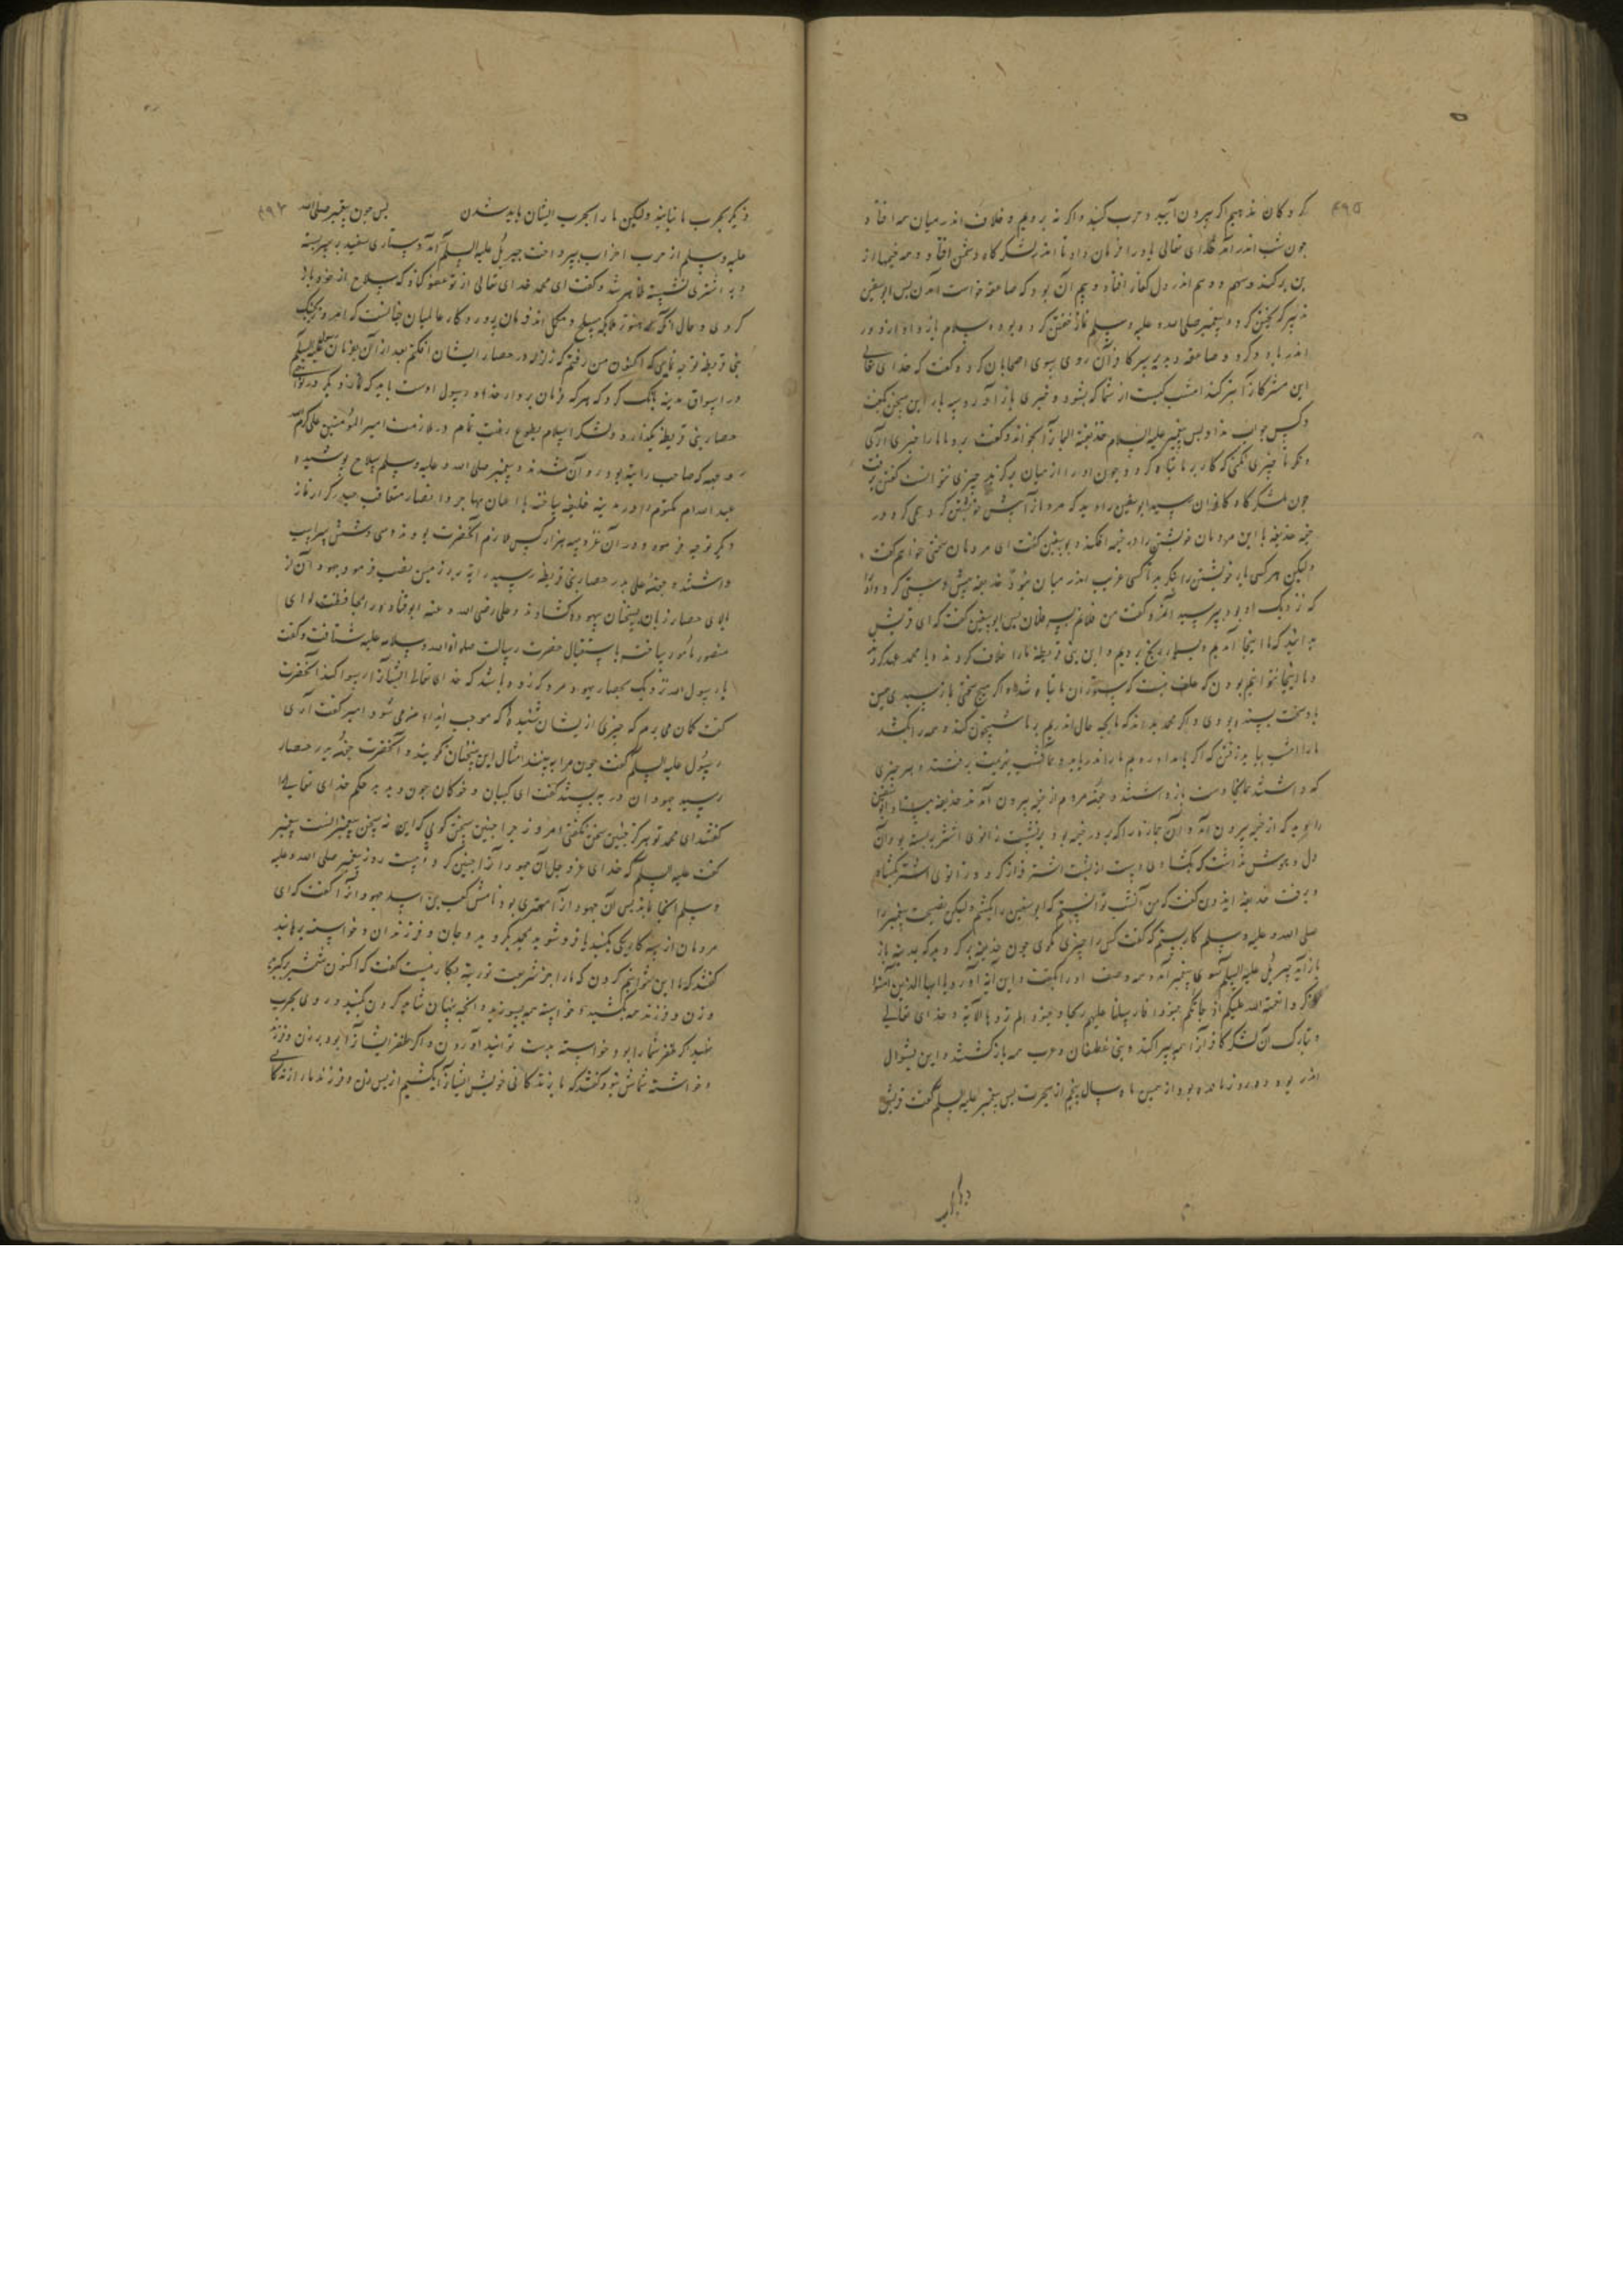 ۴۹۵
کروکان ندهیم اگر بیرون آیید و حرب کنید و اگر نه برویم و خلاف اندر میان همه افتاد
چون شب اندر آمد خدای تعالی باد را فرمان داد تا اندر لشکرگاه دشمن افتاد و همه خیمها از
بن برکند و سهم و بیم اندر دل کفار افتاد و بیم آن بود که صاعقه خواست آمدن پس ابوسفین
تدبیر گریختن کرد و پیغمبر صلی الله علیه وسلم نماز خفتن کرده بود و سلام باز داد
روی بسوی اصحابان کرد و گفت که خدای تعالی
این مشرکانرا هزیمت کند امشب کیست از شما که بشود و خبری باز آورد سه بار این سخن بگفت
و کس جواب نداد پس پیغمبر علیه السلام حذیفة الیمانرا بخواند و گفت برو تا ما را خبری آری
و نگر تا چیزی نکنی که کار بر ما تباه گردد چون او را از میان برگزید چیزی نتوانست گفتن برفت
چون بلشکرگاه کافران رسید ابوسفین را دید که مردمانرا
خیمه حذیفه با این مردمان خویشتن را در خیمه افکند و بوسفین گفت ای مردمان سخنی خواهم گفت
ولیکن هر کسی باید خویشتن را نگرید تا کسی غریب اندر میان نبود حذیفه پیش دستی کرد و او را
که نزدیک او بود بپرسید او گفت من فلانم پسر فلان پس ابوسفین گفت که ای قریش
بدانید که ما اینجا آمدیم و بسیار رنج بردیم و این بنی قریظه ما را خلاف کردند و با محمد عهد کردند
و ما اینجا نتوانیم بودن که علف نیست که ستوران ما تباه شد و اگر هیچ سختی ما نرسیدی همین
باد سخت بسنده بودی و اگر محمد بداند که ما بچه حال اندریم بر ما شبیخون کند و همه را بکشد
ما را امشب بباید رفتن که اگر بامداد
که داشتند همانجا دست باز داشتند و جمله مردم از خیمه بیرون آمدند حذیفه
را دید که از خیمه بیرون آمد و آن جمازه را که بر در خیمه بود برنشست زانوی اشتر بسته بود و آن
دل و هوش نداشت که بگشادی
و برفت حذیفه ایدون گفت که من آنشب توانستم که ابوسفین را بکشم ولیکن نصیحت پیغمبر را
صلی الله علیه وسلم کار بستم که گفت کس را چیزی نگوی چون حذیفه
باز آمد جبریل علیه السلام سوی پیغمبر آمد و همه وصف او را بگفت و این آیه آورد یا ایها الذین آمنوا
اذکروا نعمة الله علیکم اذ جاءتکم جنود فارسلنا علیهم ریحا و جنودا لم تروها الآیه و خدای تعالی
و تبارک آن لشکر کافرانرا همه بپراکند و بنی غطفان و عرب همه باز گشتند و این بشوال
اندر بود و دو روز مانده بود از همین ماه سال پنجم از هجرت پس پیغمبر علیه السلم گفت قریش
دیگر بحرب ما نیایند ولیکن ما را بحرب ایشان باید شدن پس چون پیغمبر صلی الله
علیه وسلم از حرب احزاب بپرداخت جبریل علیه السلم آمد دستاری سفید بر سر بسته
و بر اشتری نشسته ظاهر شد و گفت ای محمد خدای تعالی از تو عفو کناد که سلاح از خود باز
کردی و حال آنکه هنوز ملائکه مسلح و مکمل اند فرمان پروردگار عالمیان چنانست که
بنی قریظه توجه نمایی که اکنون من رفتم که زلزله در حصار ایشان افکنم بعد از آن بفرمان رسول علیه السلم
در اسواق مدینه بانگ کرد که هر که فرمان بردار خدا و رسول اوست باید که نماز دیگر در نواحی
حصار بنی قریظه بگذارد و لشکر اسلام بطوع رغبت تمام در ملازمت امیر المؤمنین علی کرم الله
وجهه که صاحب رایت بود روان شدند و پیغمبر صلی الله علیه وسلم سلاح پوشیده
عبد الله ام مکتوم را در مدینه خلیفه ساخت با اعیان مهاجر و انصار متعاقب حیدر کرار نماز
دیگر توجه فرمود و در آن غزو سه هزار کس ملازم آنحضرت بودند و سی و شش سر اسب
داشتند و چون علی بدر حصار بنی قریظه رسید رایت بر زمین نصب فرمود جهودان از
بالای حصار زبان بسخنان بیهوده گشادند و علی رضی الله عنه ابوقتاده را بمحافظت لوای
منصور مأمور ساخت باستقبال حضرت رسالت صلوات الله وسلامه علیه شتافت و گفت
یا رسول الله نزدیک بحصار یهود مرو که زود باشد که خدای تعالی ایشانرا رسوا کند آنحضرت
گفت گمان می برم که چیزی از یشان شنیده که موجب ایذاء من می شود امیر گفت آری
رسول علیه السلم گفت چون مرا به بینند امثال این سخنان نگویند و آنحضرت چون بدر حصار
رسید جهودان در به بستند گفت ای کپیان و خوکان چون دیدید حکم خدای تعالی را
گفتند ای محمد تو هرگز چنین سخن نگفتی امروز چرا چنین سخن گویی که این نه سخن پیغمبرانست پیغمبر
گفت علیه السلم که خدای عز و جل آن جهودانرا چنین کرد و بیست روز پیغمبر صلی الله علیه
وسلم آنجا بماند پس آن جهودانرا مهتری بود نامش کعب بن اسد جهودانرا گفت که ای
مردمان از سه کار یکی بکنید یا فرو شوید بمحمد بگروید و جان و فرزندان و خواسته برهانید
گفتند که ما این نتوانیم کردن که ما را جز شریعت توریة بکار نیست گفت که اکنون شمشیر برگیرید
و زن و فرزند همه بکشید و خواسته همه بسوزید و آنچه پنهان شاید کردن بکنید و روی بحرب
نهید اگر ظفر شما را بود خواسته بدست توانید آوردن و اگر ظفر ایشانرا بود بر زن و فرزند
و خواسته شماش نبود گفتند که ما بزندگانی خویش ایشانرا بکشیم از پس زن و فرزند ما را زندگانی